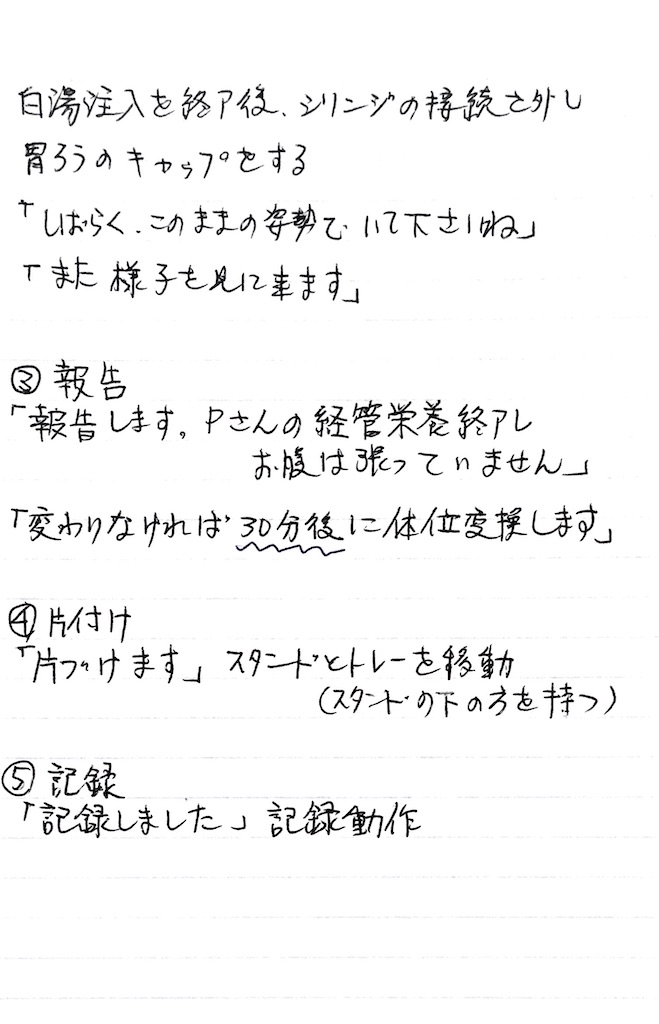 白湯注入を終了後、シリンジの接続を外し
胃ろうのキャップをする
「しばらく、このままの姿勢でいて下さいね」
「また様子を見に来ます」
③報告
「報告します。Pさんの経管栄養終了し
お腹は張っていません」
「変わりなければ30分後に体位変換します」
④片付け
「片づけます」スタンドとトレーを移動
(スタンドの下の方を持つ)
⑤記録
「記録しました」記録動作